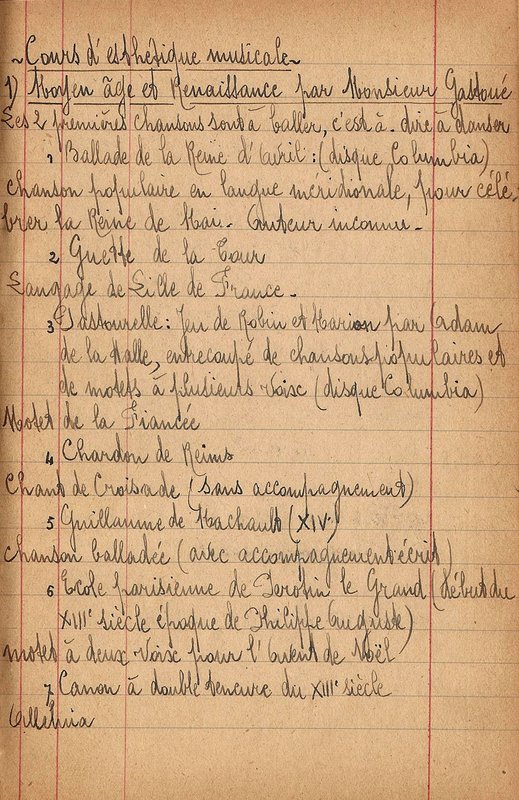 ~Cours d'esthétique musicale~
1) Moyen âge et Renaissance par Monsieur Gastoué
Les 2 premières chansons sont à baller, c'est à dire à danser
1 Ballade de la Reine d'Avril : (disque Columbia)
chanson populaire en langue méridionale, pour célé-
brer la Reine de Mai. Auteur inconnu.
2 Guette de la Tour
Langage de Lille de France.
3 Pastourelle : Jeu de Robin et Marion par (Adam
de la Halle, entrecoupé de chansons populaires et
de motets à plusieurs voix (disque Columbia)
Motet de la Fiancée
4 Chardon de Reims
Chant de Croisade (sans accompagnement)
5 Guillaume de Machault (XIV)
chanson balladée (avec accompagnement écrit)
6 Ecole parisienne de Perotin le Grand (début du
XIIIe siècle époque de Philippe Auguste)
motet à deux voix pour l'Avent de Noël
7 Canon à double teneure du XIIIe siècle
Alleluia